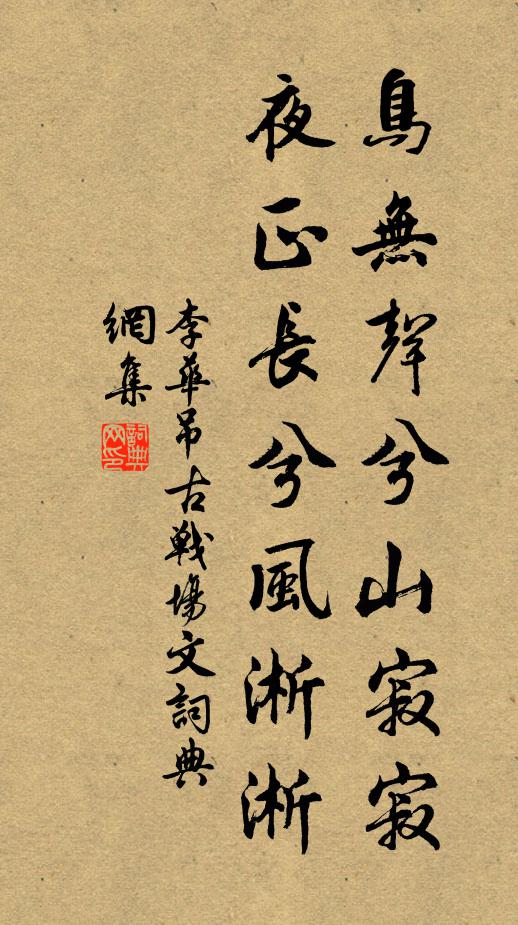 鳥無聲兮山寂寂
夜正長兮風淅淅
李華弔古戰場文詞典
網集
詞典
网印